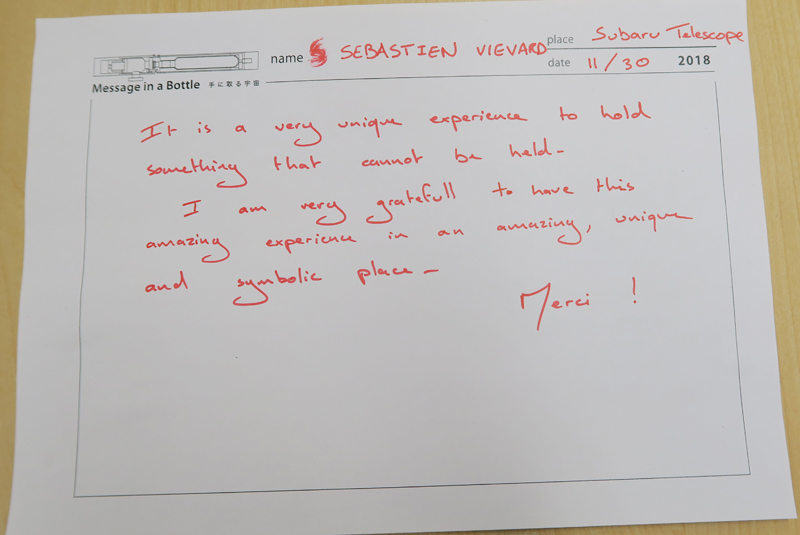 name SEBASTIEN VIEVARD place Subaru Telescope
date 11/30 2018
Message in a Bottle 手に取る宇宙
It is a very unique experience to hold
something that cannot be held-
I am very gratefull to have this
amazing experience in an amazing, unique
and symbolic place-
Merci !